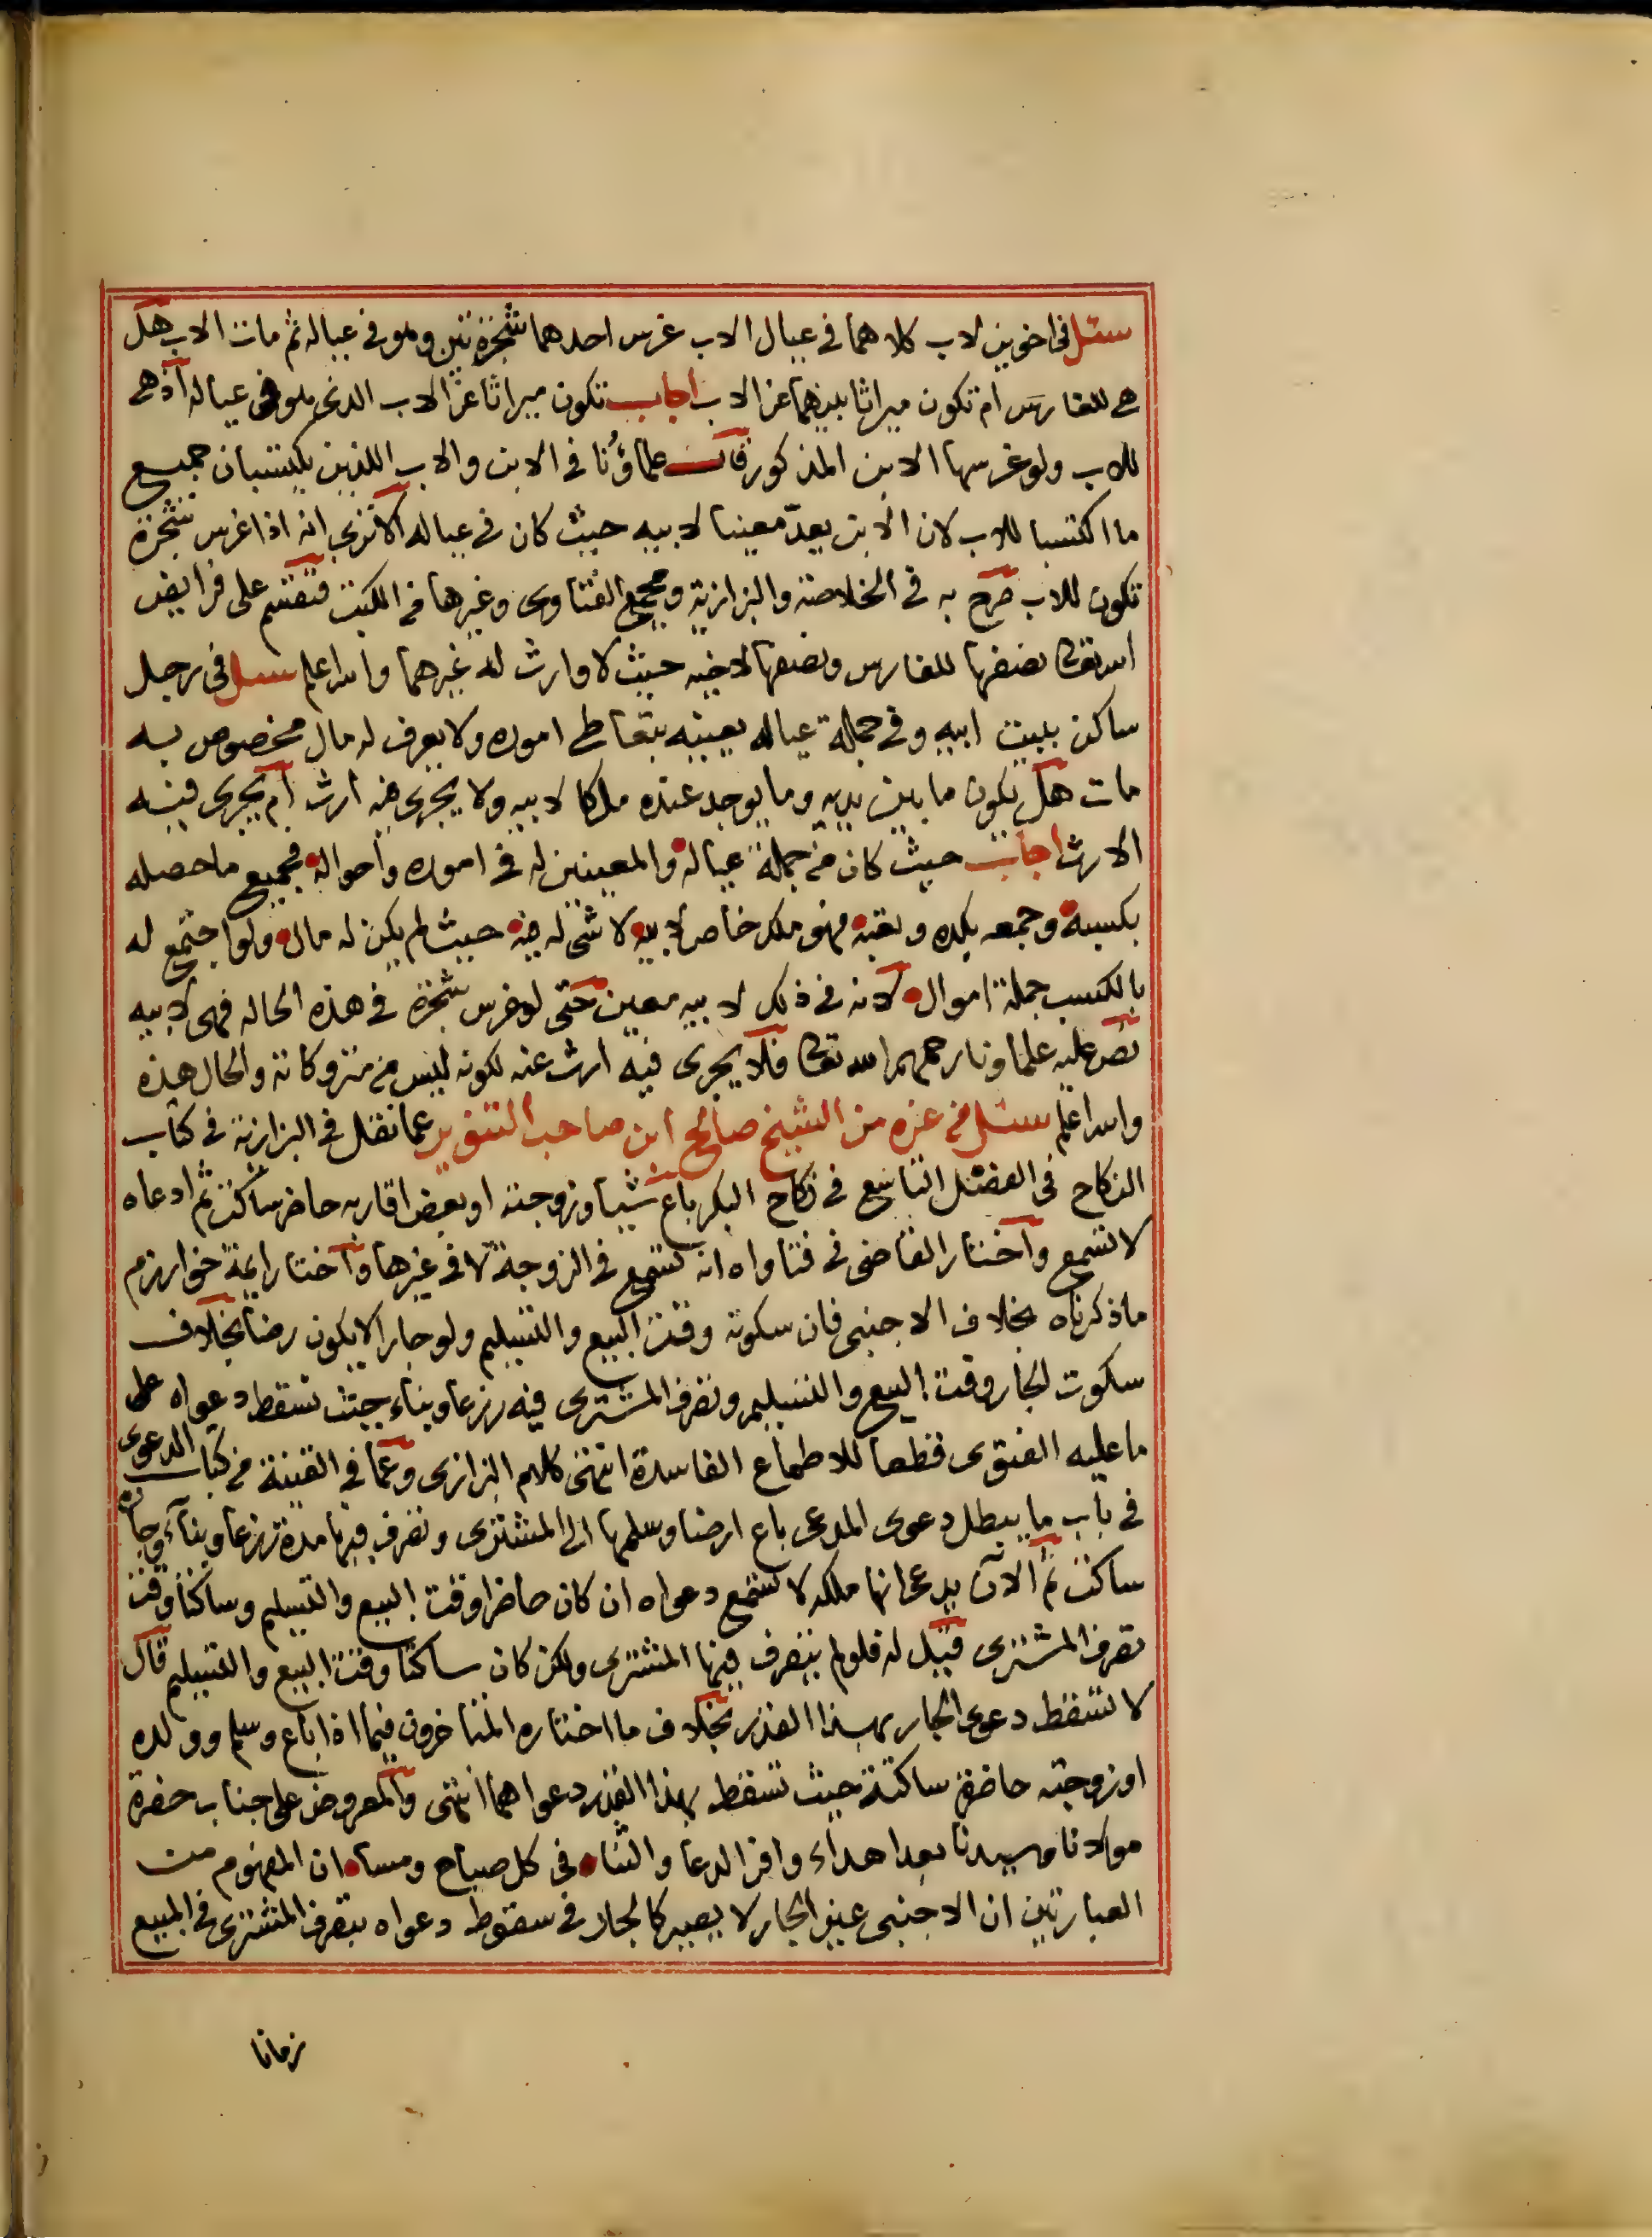 سئل في اخوين لاب كلاهما في عيال الاب غرس احدهما شجرة تين وهو في عياله ثم مات الاب هل
هي للغارس ام تكون ميراثا بينهما عن الاب اجاب تكون ميراثا عن الاب الذي هو في عياله اذ هي
للاب ولو غرسها الابن المذكور قالت علماؤنا في الابن والاب اللذين يكتسبان جميع
ما اكتسبا للاب لان الابن يعد معينا لابيه حيث كان في عياله الا ترى انه اذا غرس شجرة
تكون للاب صرح به في الخلاصة والبزازية ومجمع الفتاوى وغيرها من الكتب فتقسم على فرايض
الله تعالى نصفها للغارس ونصفها لاخيه حيث لا وارث له غيرهما والله اعلم سئل في رجل
ساكن ببيت ابيه وفي جملة عياله يعينه بتعاطي اموره ولا يعرف له مال مخصوص به
مات هل يكون ما بين يديه وما يوجد عنده ملكا لابيه ولا يجري فيه ارث ام يجري فيه
الارث اجاب حيث كان من جملة عياله والمعينين له في اموره واحواله فجميع ما حصله
بكسبه وجمعه بكده وتعبه فهو ملك خاص لابيه لا شي له فيه حيث لم يكن له مال ولو اجتمع له
بالكسب جملة اموال لانه في ذلك لابيه معين حتى لو غرس شجرة في هذه الحاله فهي لابيه
نص عليه علماونا رحمهم الله تعالى فلا يجري فيه ارث عنه لكونه ليس من متروكاته والحال هذه
والله اعلم سئل من غزه من الشيخ صالح ابن صاحب التنوير عما نقل في البزازية في كتاب
النكاح في الفصل التاسع في نكاح البكر باع شيا وزوجته او بعض اقاربه حاضر ساكت ثم ادعاه
لا تسمع واختار القاضي في فتاواه انه تسمع في الزوجة لا في غيرها واختار ايمة خوارزم
ما ذكرناه بخلاف الاجنبي فان سكوته وقت البيع والتسليم ولو جارا لا يكون رضا بخلاف
سكوت الجار وقت البيع والتسليم وتصرف المشتري فيه زرعا وبناء حيث تسقط دعواه على
ما عليه الفتوى قطعا للاطماع الفاسدة انتهى كلام البزازي وعما في القنية من كتاب الدعوى
في باب ما يبطل دعوى المدعي باع ارضا وسلمها الى المشتري وتصرف فيها مدة زرعا وبناء وجاره
ساكت ثم الان يدعي انها ملكه لا تسمع دعواه ان كان حاضرا وقت البيع والتسليم وساكتا وقت
تصرف المشتري قيل له فلو لم يتصرف فيها المشتري ولكن كان ساكتا وقت البيع والتسليم قال
لا تسقط دعوى الجار بهذا القدر بخلاف ما اختاره المتاخرون فيما اذا باع وسلم وولده
او زوجته حاضرة ساكتة حيث تسقط بهذا القدر دعواهما انتهى والمعروض على جناب حضرة
مولانا وسيدنا بعد اهداء وافر الدعا والثناء في كل صباح ومساء ان المفهوم من
العبارتين ان الاجنبي غير الجار لا يصير كالجار في سقوط دعواه بتصرف المشتري في المبيع
زمانا